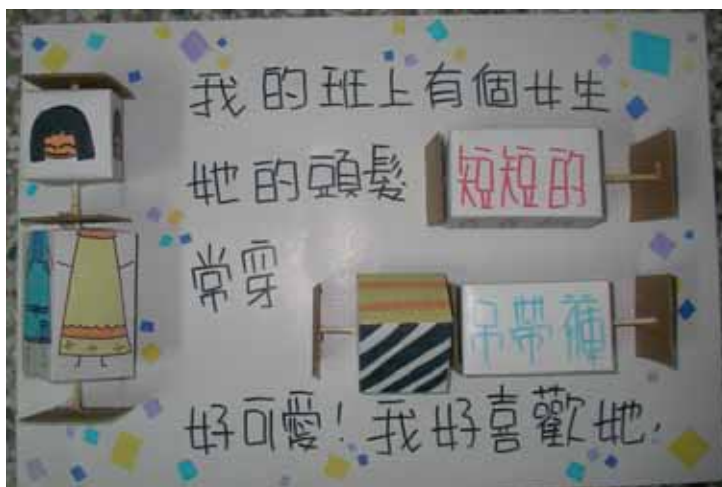 我的班上有個女生
她的頭髮 短短的
常穿 吊帶褲
好可愛!我好喜歡她.